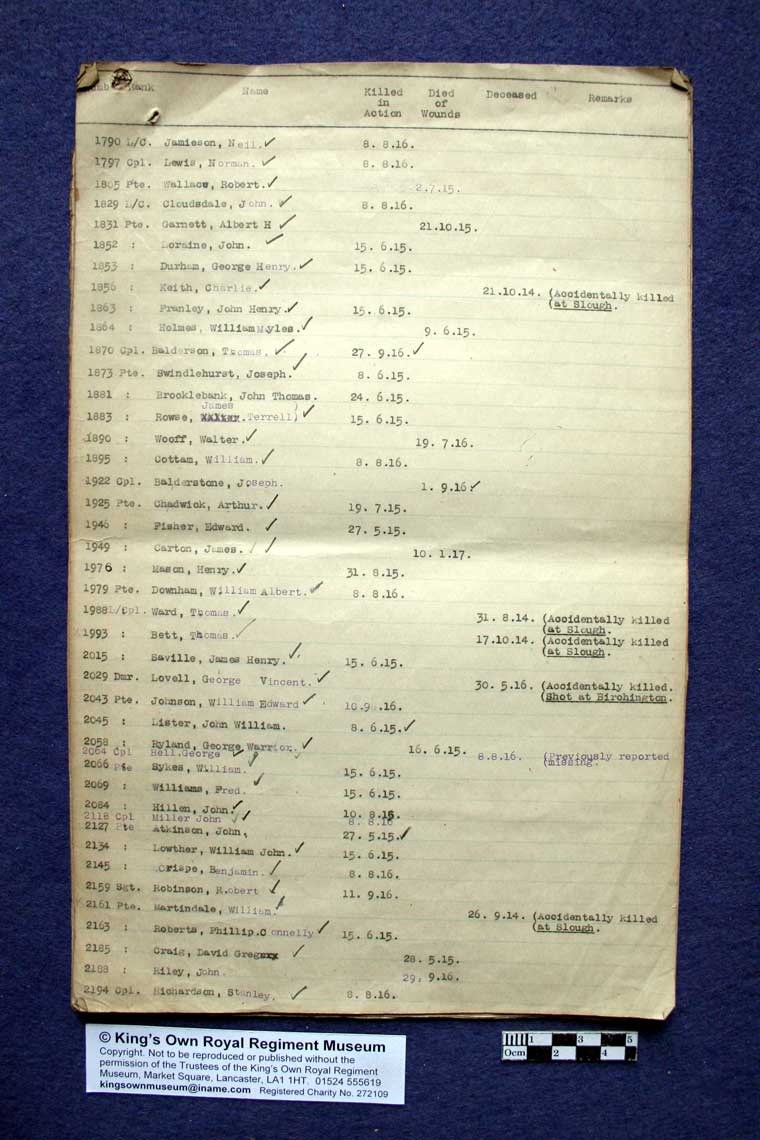 Rank Name Killed in Action Died of Wounds Deceased Remarks
1790 L/C. Jamieson, Neil. ✓ 8. 8.16.
1797 Cpl. Lewis, Norman. ✓ 8. 8.16.
1805 Pte. Wallace, Robert. ✓ 2.7.15.
1829 L/C. Cloudsdale, John. ✓ 8. 8.16.
1831 Pte. Garnett, Albert H ✓ 21.10.15.
1852 : Loraine, John. ✓ 15. 6.15.
1853 : Durham, George Henry. ✓ 15. 6.15.
1856 : Keith, Charlie. ✓ 21.10.14. (Accidentally killed
(at Slough.
1863 : Franley, John Henry. ✓ 15. 6.15.
1864 : Holmes, William Myles. ✓ 9. 6.15.
1870 Cpl. Balderson, Thomas. ✓ 27. 9.16. ✓
1873 Pte. Swindlehurst, Joseph. ✓ 8. 6.15.
1881 : Brocklebank, John Thomas. 24. 6.15.
James
1883 : Rowse, Walter. Terrell) ✓ 15. 6.15.
1890 : Wooff, Walter. ✓ 19. 7.16.
1895 : Cottam, William. ✓ 8. 8.16.
1922 Cpl. Balderstone, Joseph. 1. 9.16. ✓
1925 Pte. Chadwick, Arthur. ✓ 19. 7.15.
1946 : Fisher, Edward. ✓ 27. 5.15.
1949 : Carton, James. ✓ 10. 1.17.
1976 : Mason, Henry. ✓ 31. 8.15.
1979 Pte. Downham, William Albert. ✓ 8. 8.16.
1988 L/Cpl. Ward, Thomas. ✓ 31. 8.14. (Accidentally killed
(at Slough.
1993 : Bett, Thomas. ✓ 17.10.14. (Accidentally killed
(at Slough.
2015 : Saville, James Henry. ✓ 15. 6.15.
2029 Dmr. Lovell, George Vincent. ✓ 30. 5.16. (Accidentally killed.
(Shot at Birchington.
2043 Pte. Johnson, William Edward ✓ 10.9 .16.
2045 : Lister, John William. 8. 6.15. ✓
2058 : Ryland, George Warrior. ✓ 16. 6.15.
2064 Cpl Hell.George ✓ 8.8.16. (Previously reported
(missing.
2066 Pte Sykes, William. 15. 6.15.
2069 : Williams, Fred. ✓ 15. 6.15.
2084 : Hillen, John. ✓ 10. 8.15.
2118 Cpl Miller John ✓ 8. 8.16
2127 Pte Atkinson, John, 27. 5.15. ✓
2134 : Lowther, William John. ✓ 15. 6.15.
2145 : Crispe, Benjamin. ✓ 8. 8.16.
2159 Sgt. Robinson, Robert ✓ 11. 9.16.
2161 Pte. Martindale, William. ✓ 26. 9.14. (Accidentally killed
(at Slough.
2163 : Roberts, Phillip.Connelly ✓ 15. 6.15.
2185 : Craig, David ✓ 28. 5.15.
2188 : Riley, John. 29. 9.16.
2194 Cpl. Richardson, Stanley. ✓ 8. 8.16.
© King's Own Royal Regiment Museum
Copyright. Not to be reproduced or published without the
permission of the Trustees of the King's Own Royal Regiment
Museum, Market Square, Lancaster, LA1 1HT. 01524 555619
kingsownmuseum@iname.com Registered Charity No. 272109
1 3 5
0cm 2 4